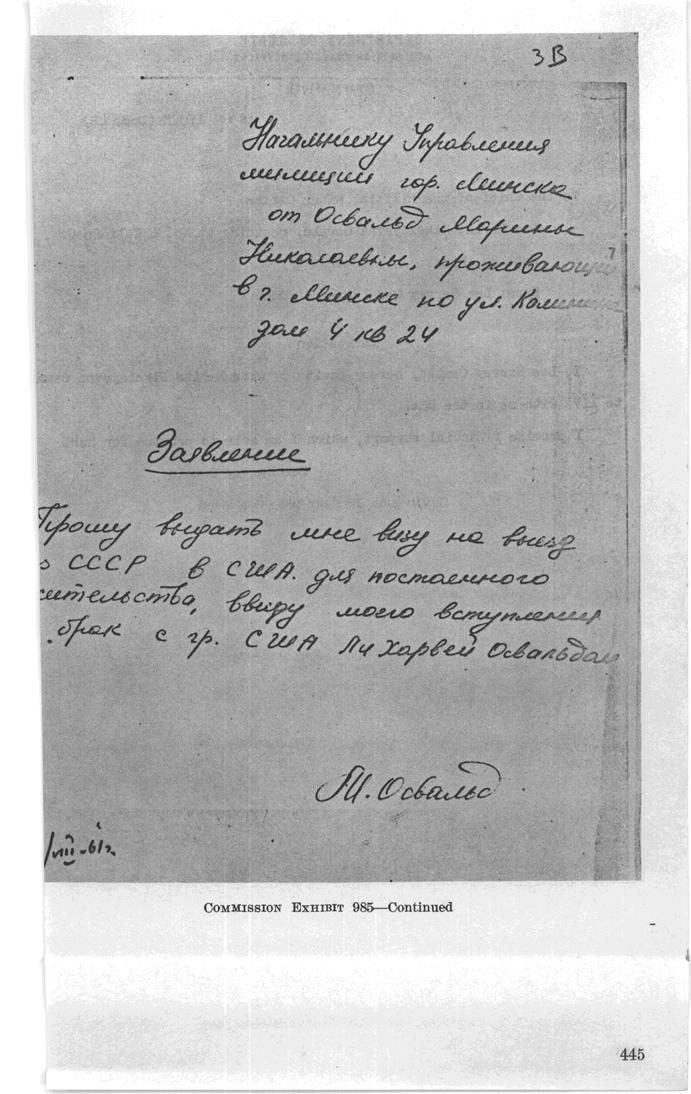 3В
Начальнику Управления
милиции гор. Минска
от Освальд Марины
Николаевны, проживающ
в г. Минске по ул. Калинина
дом 4 кв 24
Заявление
Прошу выдать мне визу на выезд
з СССР в США. для постоенного
жительства, ввиду моего вступления
брак с гр. США Ли Харвей Освальдом
М. Освальд
/VII-61г
COMMISSION EXHIBIT 985—Continued
445